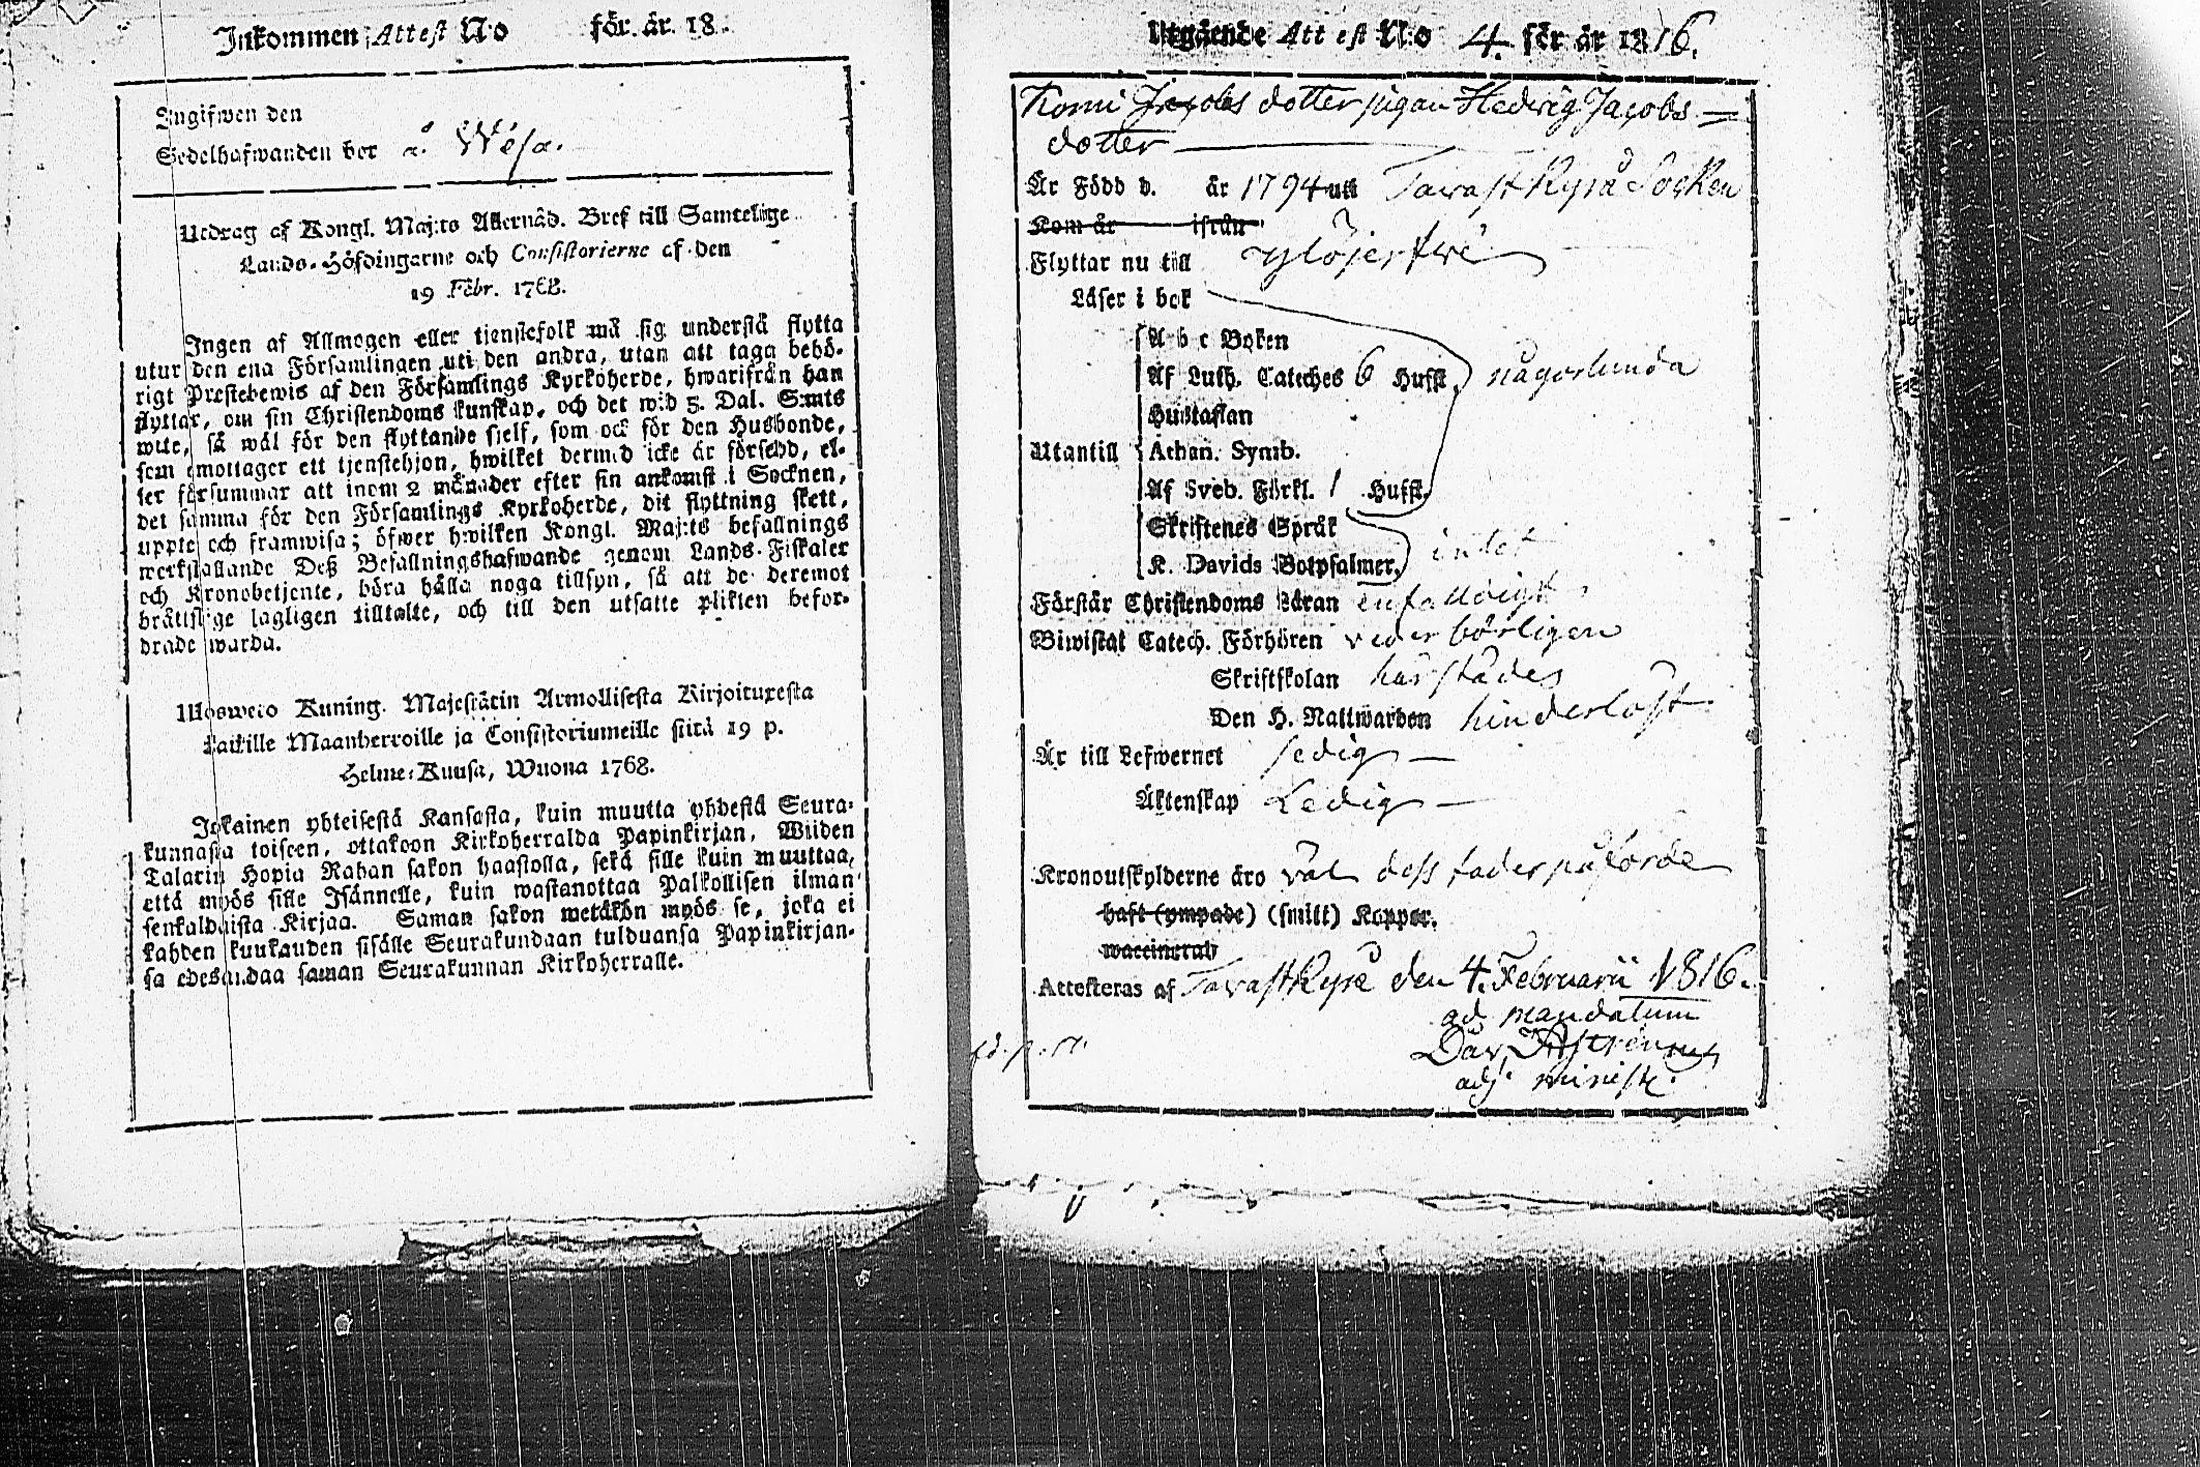 Inkommen Attest N:o för år 18
Angifwen den
Sedelhafwanden bor å Wesa.
Utdrag af Kongl. Maj:ts Allernåd. Bref till Samtelige
Lands-Höfdingarne och Consistorierne af den
19 Febr. 1768.
Ingen af Allmogen eller tjenstefolk må sig understå flytta
utur den ena Församlingen uti den andra, utan att taga behö-
rigt Prestebewis af den Församlings Kyrkoherde, hwarifrån han
flyttar, om sin Christendoms kunskap, och det wid 5. Dal. S:mts
wite, så wäl för den flyttande sjelf, som ock för den Husbonde,
som emottager ett tjenstehjon, hwilket dermed icke är försedd, el-
ler försummar att inom 2 månader efter sin ankomst i Socknen,
det samma för den Församlings Kyrkoherde, dit flyttning skett,
uppte och framwisa; öfwer hwilken Kongl. Maj:ts befallnings
werkställande Deß Befallningshafwande genom Lands-Fiskaler
och Kronobetjente, böra hålla noga tillsyn, så att de deremot
bråttslige lagligen tilltalte, och till den utsatte plikten befor-
drade warda.
Ulosweto Kuning. Majestätin Armollisesta Kirjoituxesta
Kaikille Maanherroille ja Consistoriumeille siitä 19 p.
Helme-Kuusa, Wuona 1768.
Jokainen yhteisestä Kansasta, kuin muutta yhdestä Seura-
kunnasta toiseen, ottakoon Kirkoherralda Papinkirjan, Wiiden
Talarin Hopia Rahan sakon haastolla, sekä sille kuin muuttaa,
että myös sille Isännelle, kuin wastanottaa Palkollisen ilman
senkaldaista Kirjaa. Saman sakon wetäkön myös se, joka ei
kahden kuukauden sisälle Seurakundaan tulduansa Papinkirjan-
sa edesandaa saman Seurakunnan Kirkoherralle.
Utgående Attest N:o 4. för år 1816.
Komi Jacobs dotter pigan Hedvig Jacobs=
dotter
Är Född d. år 1794 uti Tavastkyrå Socken
Kom år ifrån
Flyttar nu till Ylöjerfwi
Läser i bok
A b c Boken
Af Luth. Cateches 6 Hufst. någorlunda
Hustaflan
Utantill Athan. Symb.
Af Sveb. Förkl. 1 Hufst.
Skriftenes Språk
K. Davids Botpsalmer, intet
Förstår Christendoms Läran enfaldigt
Biwistat Catech. Förhören vederbörligen
Skriftskolan härstädes
Den H. Nattwarden hinderlöst
Är till Lefwernet sedig
Äktenskap Ledig
Kronoutskylderne äro väl dess fader påförde
haft (ympade) (smitt) Koppor.
waccinerad
Attesteras af Tavastkyrå den 4. Februarii 1816.
ad mandatum
adj. minist.